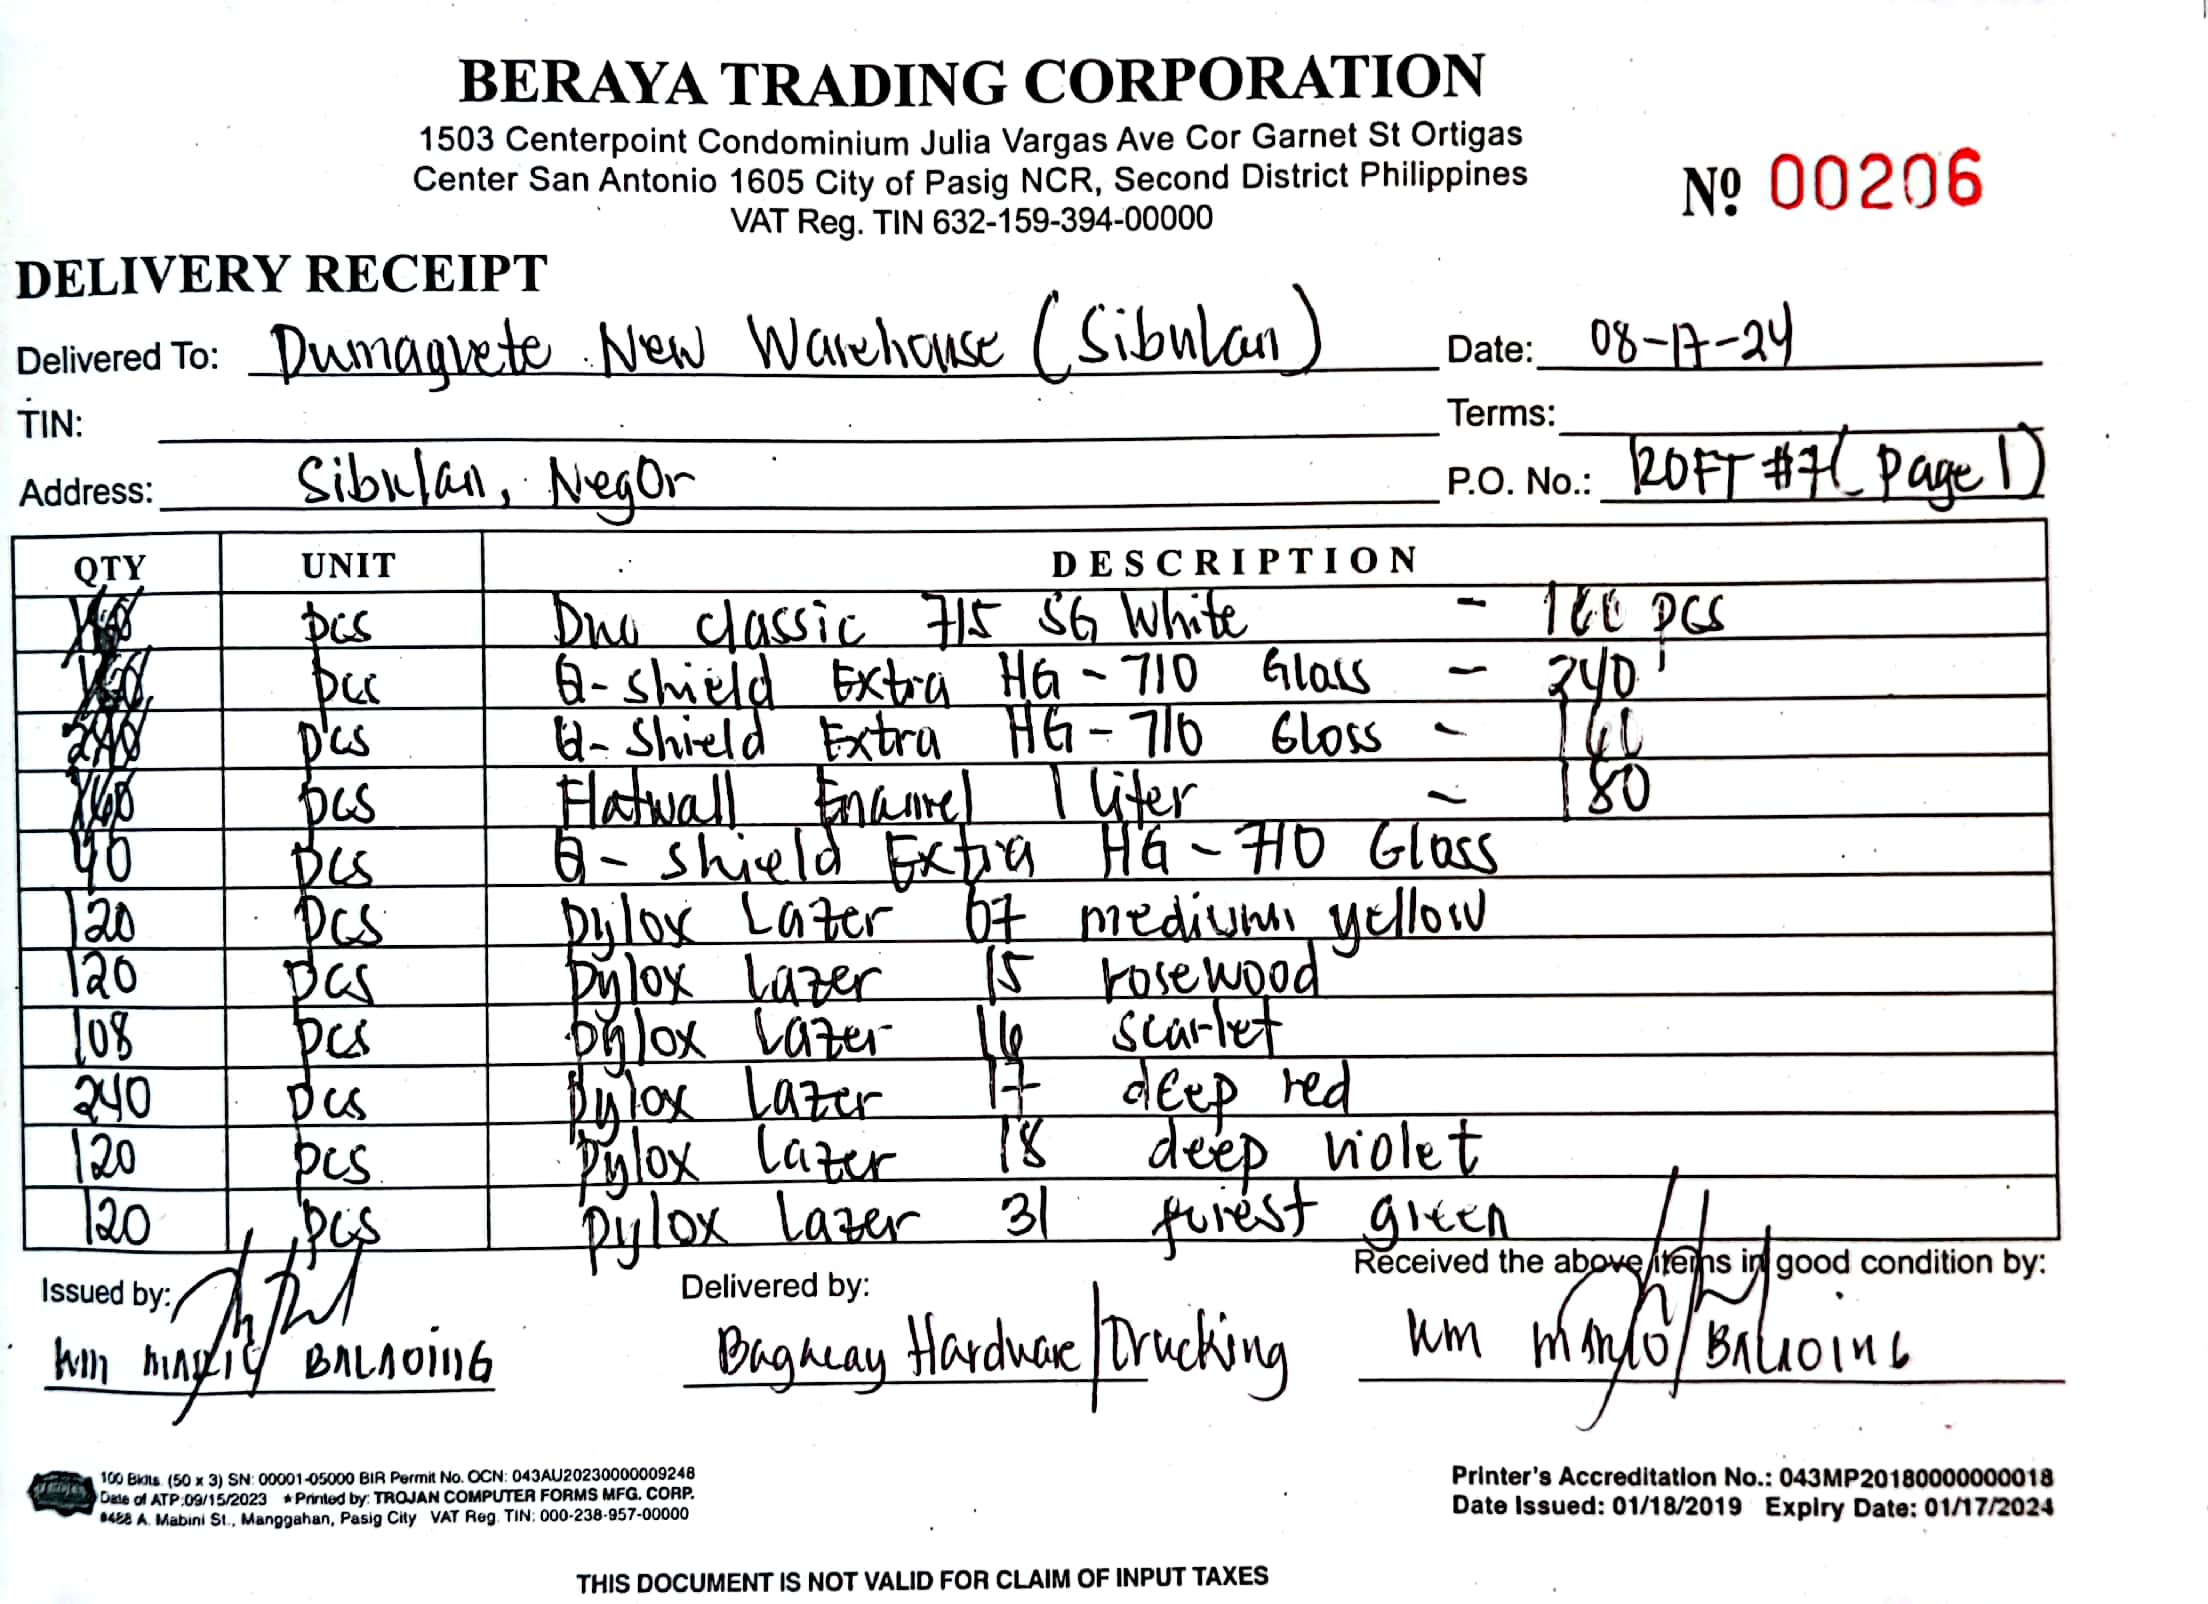 BERAYA TRADING CORPORATION
1503 Centerpoint Condominium Julia Vargas Ave Cor Garnet St Ortigas
Center San Antonio 1605 City of Pasig NCR, Second District Philippines
VAT Reg. TIN 632-159-394-00000
Nº 00206
DELIVERY RECEIPT
Delivered To: Dumaguete New Warehouse (Sibulan) Date: 08-17-24
TIN: Terms:
Address: Sibulan, NegOr P.O. No.: 20FT #7 (Page 1)
QTY UNIT DESCRIPTION
pcs classic 715 SG White - pcs
pcs Q-shield Extra HG-710 Gloss - 240
pcs Q-Shield Extra HG-710 Gloss -
pcs Flatwall Enamel 1 liter - 180
40 pcs Q-shield Extra HG-710 Gloss
120 pcs pylox Lazer 67 medium yellow
120 pcs pylox Lazer 15 rosewood
108 pcs pylox Lazer 16 scarlet
240 pcs pylox Lazer 17 deep red
120 pcs pylox Lazer 18 deep violet
120 pcs pylox Lazer 31 forest green
Issued by: Delivered by: Received the above items in good condition by:
BALAOING Hardware/Trucking BALAOING
100 Bklts. (50 x 3) SN: 00001-05000 BIR Permit No. OCN: 043AU20230000009248
Date of ATP:09/15/2023 ★Printed by: TROJAN COMPUTER FORMS MFG. CORP.
#488 A. Mabini St., Manggahan, Pasig City VAT Reg. TIN: 000-238-957-00000
Printer's Accreditation No.: 043MP20180000000018
Date Issued: 01/18/2019 Expiry Date: 01/17/2024
THIS DOCUMENT IS NOT VALID FOR CLAIM OF INPUT TAXES